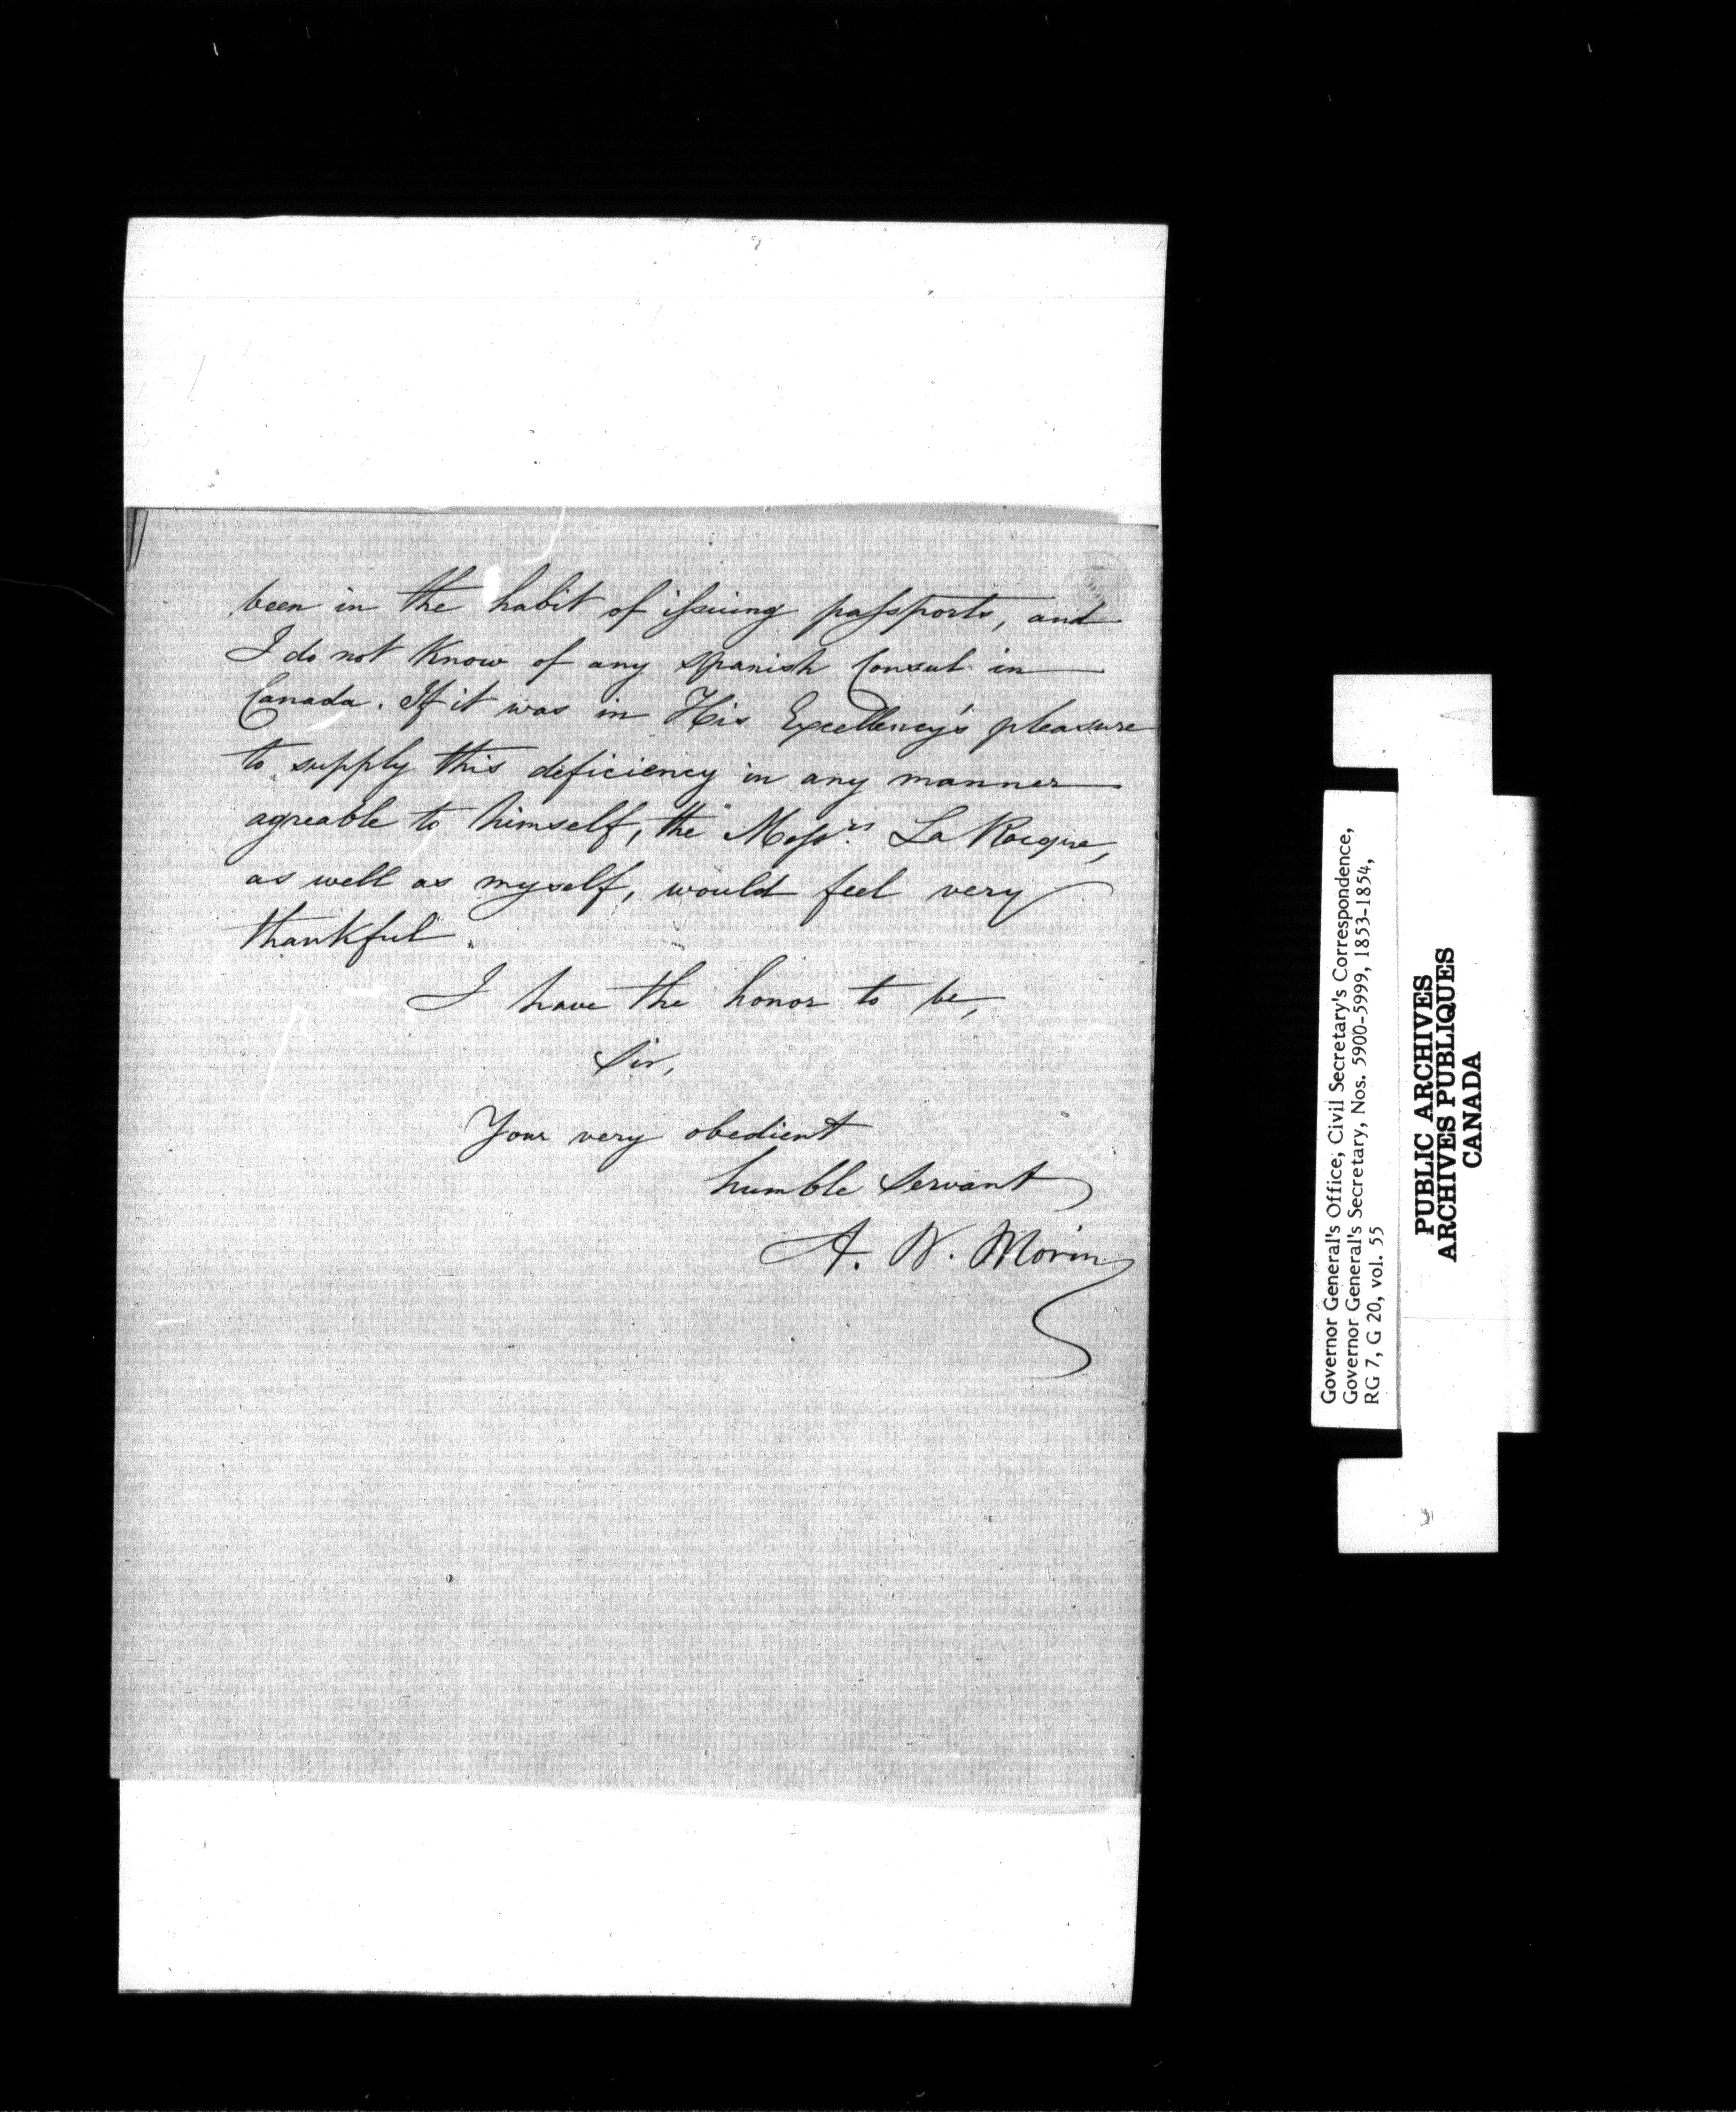 been in the habit of issuing passports, and
I do not know of any Spanish Consul in
Canada. If it was in His Excellency's pleasure
to supply this deficiency in any manner
agreable to himself, the Messrs. La Rocque,
as well as myself, would feel very
thankful.
I have the honor to be,
Sir,
Your very obedient
humble servant
A. N. Morin
Governor General's Office; Civil Secretary's Correspondence,
Governor General's Secretary, Nos. 5900-5999, 1853-1854,
RG 7, G 20, vol. 55
PUBLIC ARCHIVES
ARCHIVES PUBLIQUES
CANADA